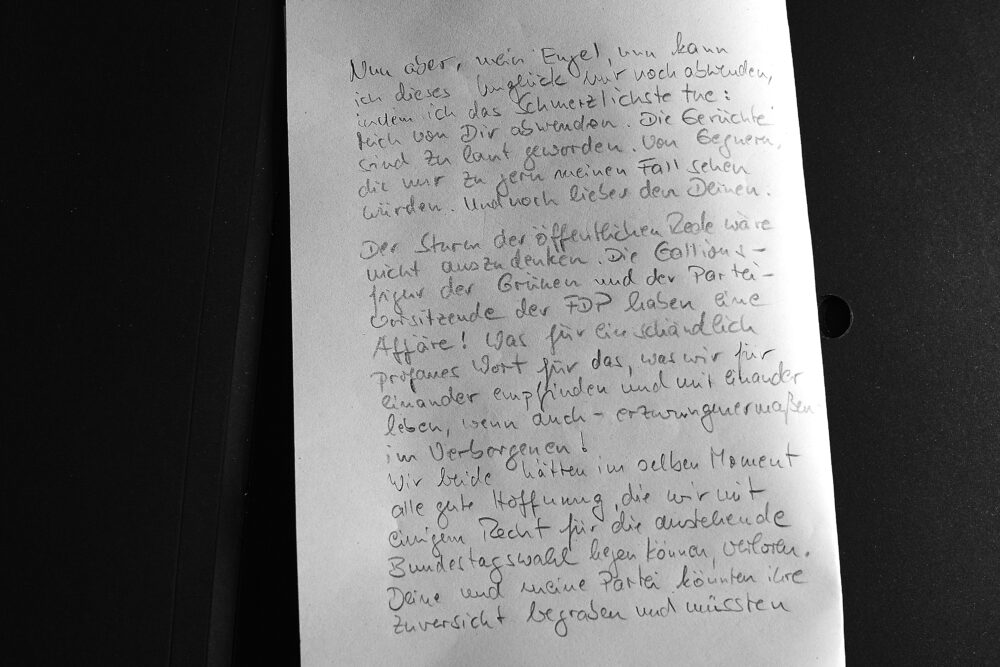 Nun aber, mein Engel, nun kann
ich dieses Unglück nur noch abwenden,
indem ich das Schmerzlichste tue:
Mich von Dir abwenden. Die Gerüchte
sind zu laut geworden. Von Gegnern,
die nur zu gern meinen Fall sehen
würden. Und noch lieber den Deinen.
Der Sturm der öffentlichen Rede wäre
nicht auszudenken. Die Gallions-
figur der Grünen und der Partei-
vorsitzende der FDP haben eine
Affäre! Was für ein schändlich
profanes Wort für das, was wir für
einander empfinden und mit einander
leben, wenn auch - erzwungenermaßen
im Verborgenen!
Wir beide hätten im selben Moment
alle gute Hoffnung, die wir mit
einigem Recht für die anstehende
Bundestagswahl hegen können, verloren.
Deine und meine Partei könnten ihre
Zuversicht begraben und müssten